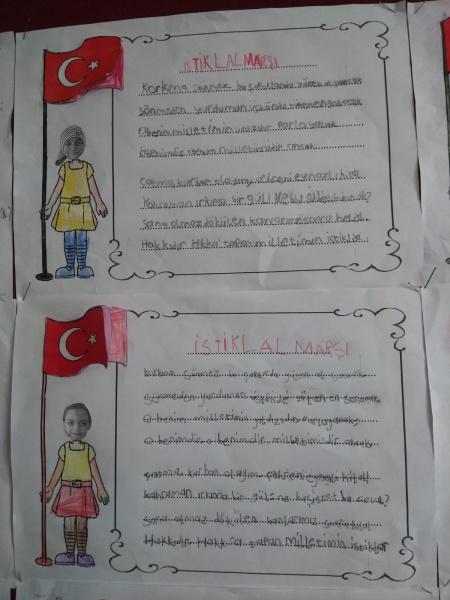 İSTİKLAL MARŞI
Korkma sönmez bu şafaklarda yüzen al sancak
Sönmeden yurdumun üstünde tüten en son ocak
O benim milletimin yıldızıdır parlayacak
O benimdir o benim milletimindir ancak
Çatma kurban olayım çehreni ey nazlı hilal
Kahraman ırkıma bir gül! Ne bu şiddet bu celal?
Sana olmaz dökülen kanlarımız sonra helal
Hakkıdır Hakka tapan milletimin istiklal
İSTİKLAL MARŞI
sönmez bu
yurdumun tüten en son ocak
O benim milletimin
O benimdir o benimdir milletimindir ancak
kurban olayım çehreni hilal!
kahraman ırkıma bir gül ne bu şiddet bu celal?
sana olmaz dökülen kanlarımız
Hakkıdır Hakk'a tapan milletimin istiklal